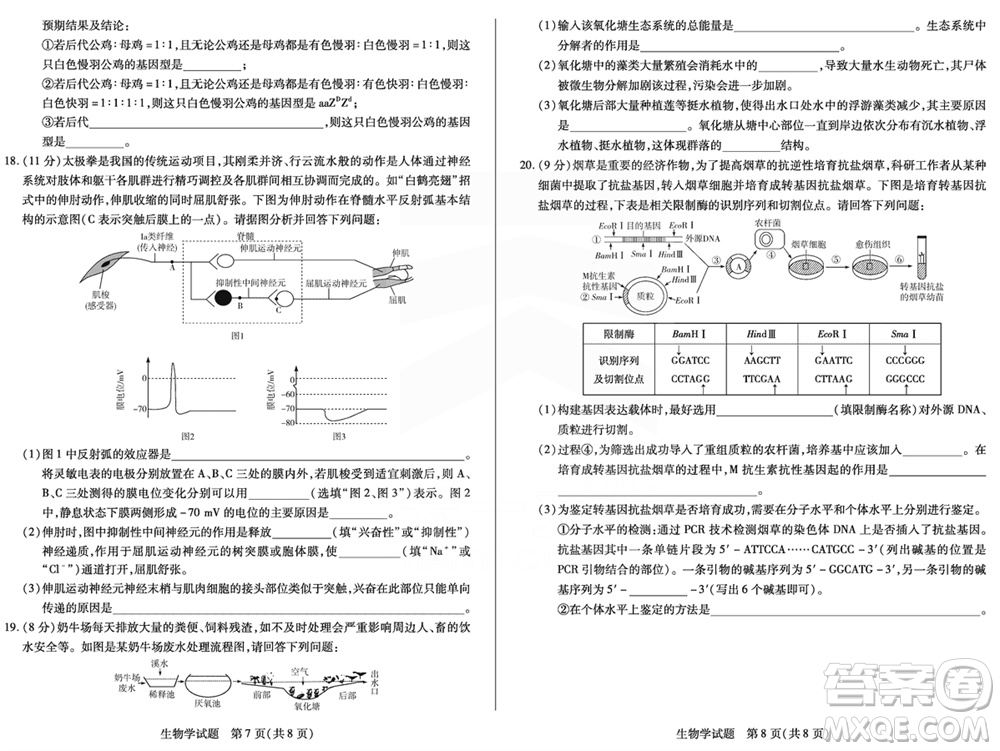 预期结果及结论：
①若后代公鸡∶母鸡＝1∶1，且无论公鸡还是母鸡都是有色慢羽∶白色慢羽＝1∶1，则这
只白色慢羽公鸡的基因型是________；
②若后代公鸡∶母鸡＝1∶1，且无论公鸡还是母鸡都是有色慢羽∶有色快羽∶白色慢羽∶
白色快羽＝1∶1∶1∶1，则这只白色慢羽公鸡的基因型是 aaZᴰZᵈ；
③若后代________，则这只白色慢羽公鸡的基因
型是________。
18.（11 分）太极拳是我国的传统运动项目，其刚柔并济、行云流水般的动作是通过神经
系统对肢体和躯干各肌群进行精巧调控及各肌群间相互协调而完成。如“白鹤亮翅”招
式中的伸肘动作，伸肌收缩的同时屈肌舒张。下图为伸肘动作在脊髓水平反射弧基本结
构的示意图（C 表示突触后膜上的一点）。请据图分析并回答下列问题：
Ⅰa类纤维
（传入神经）
脊髓
伸肌运动神经元
伸肌
A
肌梭
（感受器）
抑制性中间神经元
B
C
屈肌运动神经元
屈肌
图1
膜电位/mV
0
-70
图2
膜电位/mV
0
-70
-80
图3
（1）图 1 中反射弧的效应器是________。
将灵敏电表的电极分别放置在 A、B、C 三处的膜内外，若肌梭受到适宜刺激，则 A、B、
C 三处测得的膜电位变化分别可以________（选填“图 2、图 3”）表示。图 2
中，静息状态下膜两侧形成－70 mV 的电位的主要原因是________。
（2）伸肘时，图中抑制性中间神经元的作用是释放________（填“兴奋性”或“抑制性”）
神经递质，作用于屈肌运动神经元的突触后膜引起________（填“Na⁺”或
“Cl⁻”）内流，使屈肌舒张。
（3）伸肌运动神经元神经末梢与肌肉细胞的接头部位类似于突触，兴奋在此处单向
传递的原因是________。
19.（8 分）奶牛场每天排放大量的粪便、饲料残渣，如不处理会严重影响周边人、畜的饮
水安全等。如图是某奶牛场废水处理流程图，请回答下列问题：
溪水
奶牛场
废水
稀释池
厌氧池
前部
空气
氧化塘
后部
出水口
生物学试题　第 7 页（共 8 页）
（1）输入该氧化塘生态系统的总能量是________。生态系统中
分解者的作用是________。
（2）氧化塘中的藻类大量繁殖会消耗水中的________，导致大量水生动物死亡，其尸体
被微生物分解加剧该过程，污染会进一步加剧。
（3）氧化塘后部大量种植莲等挺水植物，使得出水口处水中的浮游藻类减少，其主要原因
是________。氧化塘从塘中心部位向岸边依次分布有沉水植物、浮
水植物、挺水植物，这体现群落的________结构。
20.（9 分）烟草是重要的经济作物，为了提高烟草的抗逆性培育抗盐烟草，科研工作者从某种
细菌中提取了抗盐基因，转入烟草细胞并培育成转基因抗盐烟草。下图是培育转基因抗
盐烟草的过程，下表是相关限制酶的识别序列和切割位点。请回答下列问题：
EcoRⅠ 目的基因
① 外源DNA
BamHⅠ SmaⅠ HindⅢ
M抗生素
抗性基因
② SmaⅠ
BamHⅠ
HindⅢ
质粒
EcoRⅠ
③
A
农杆菌
④
烟草细胞
⑤
愈伤组织
⑥
转基因抗盐
的烟草幼苗
限制酶 BamHⅠ HindⅢ EcoRⅠ SmaⅠ
识别序列 GGATCC AAGCTT GAATTC CCCGGG
及切割位点 CCTAGG TTCGAA CTTAAG GGGCCC
（1）构建基因表达载体时，最好选用________（填限制酶名称）对外源 DNA、
质粒进行切割。
（2）过程④，为筛选出成功导入了重组质粒的农杆菌，培养基中应该加入________。在
培育成转基因抗盐烟草的过程中，M 抗生素抗性基因起的作用是________
________。
（3）为鉴定转基因抗盐烟草是否培育成功，需要在分子水平和个体水平上分别进行鉴定。
①分子水平的检测：通过 PCR 技术检测烟草的染色体 DNA 上是否插入了抗盐基因。
抗盐基因的某单链片段为 5′－ATTCCA……CATGCC－3′（列出碱基的部位为
PCR 引物结合的部位），一条引物的碱基序列为 5′－GGCATG－3′，另一条引物的
碱基序列为 5′－________－3′（写出 6 个碱基即可）。
②在个体水平上鉴定的方法是________。
生物学试题　第 8 页（共 8 页）
答案圈
MXQE.COM